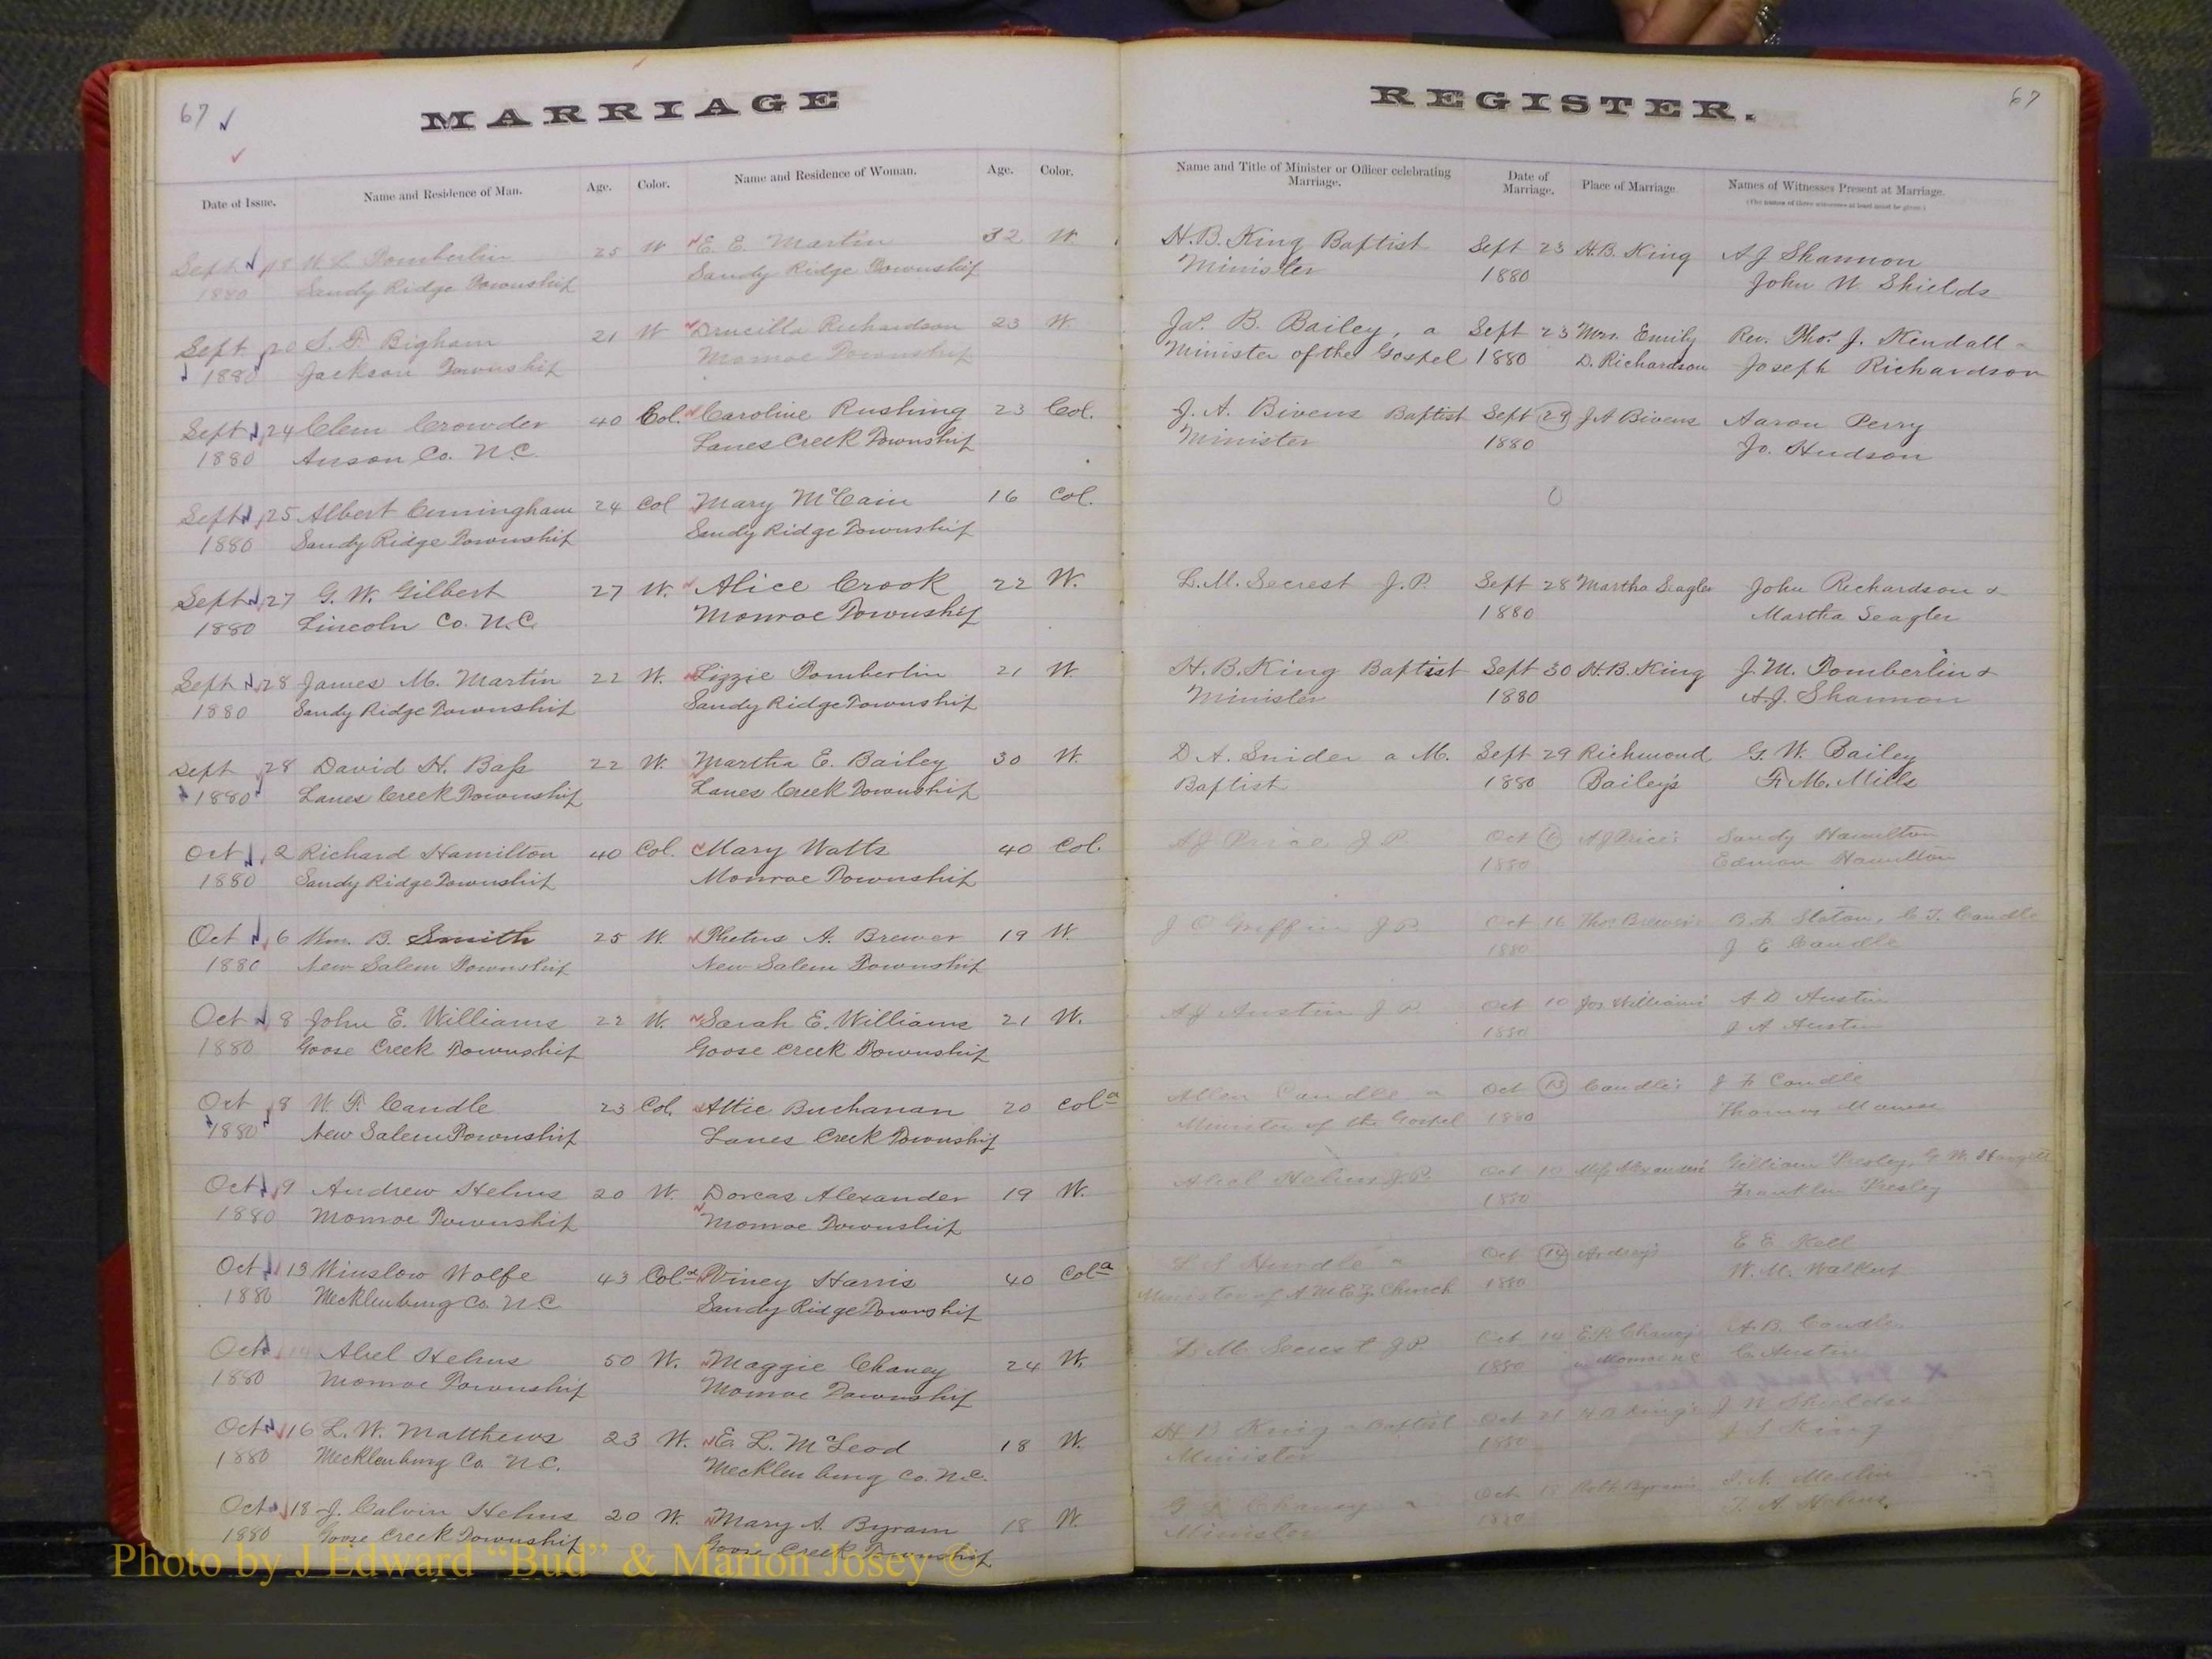 67
MARRIAGE
Date of Issue. Name and Residence of Man. Age. Color. Name and Residence of Woman. Age. Color.
Sept 18 W. L. Tomberlin 25 W E. E. Martin 32 W.
1880 Sandy Ridge Township Sandy Ridge Township
Sept 20 S. F. Bigham 21 W Drucilla Richardson 23 W.
1880 Jackson Township Monroe Township
Sept 24 Clem Crowder 40 Col. Caroline Rushing 23 Col.
1880 Anson Co. N.C. Lanes Creek Township
Sept 25 Albert Cuningham 24 Col Mary McCain 16 Col.
1880 Sandy Ridge Township Sandy Ridge Township
Sept 27 G. W. Gilbert 27 W. Alice Crook 22 W.
1880 Lincoln Co. N.C. Monroe Township
Sept 28 James M. Martin 22 W. Lizzie Tomberlin 21 W.
1880 Sandy Ridge Township Sandy Ridge Township
Sept 28 David H. Bass 22 W. Martha E. Bailey 30 W.
1880 Lanes Creek Township Lanes Creek Township
Oct 2 Richard Hamilton 40 Col. Mary Watts 40 Col.
1880 Sandy Ridge Township Monroe Township
Oct 6 Wm. B. Smith 25 W. A. Brewer 19 W.
1880 New Salem Township New Salem Township
Oct 8 John E. Williams 22 W. Sarah E. Williams 21 W.
1880 Goose Creek Township Goose Creek Township
Oct 8 W. F. Caudle 23 Col. Attie Buchanan 20 Cola
1880 New Salem Township Lanes Creek Township
Oct 9 Andrew Helms 20 W. Dorcas Alexander 19 W.
1880 Monroe Township Monroe Township
Oct 13 Winslow Wolfe 43 Cola Viney Harris 40 Cola
1880 Mecklenburg Co. N.C Sandy Ridge Township
Oct 14 Abel Helms 50 W. Maggie Chaney 24 W.
1880 Monroe Township Monroe Township
Oct 16 L. W. Matthews 23 W. E. L. McLeod 18 W.
1880 Mecklenburg Co. N.C. Mecklenburg Co. N.C.
Oct 18 J. Calvin Helms 20 W. Mary A. Byram 18 W.
1880 Goose Creek Township Goose Creek Township
REGISTER.
67
Name and Title of Minister or Officer celebrating Marriage. Date of Marriage. Place of Marriage. Names of Witnesses Present at Marriage.
(The names of three witnesses at least must be given.)
H. B. King Baptist Sept 23 H.B. King A J Shannon
Minister 1880 John W Shields
Jas. B. Bailey, a Sept 23 Mrs. Emily Rev. Thos. J. Kendall
Minister of the Gospel 1880 D. Richardson Joseph Richardson
J. A. Bivens Baptist Sept 29 J A Bivens Aaron Perry
Minister 1880 Jo. Hudson
0
L. M. Secrest J. P. Sept 28 Martha Seagler John Richardson &
1880 Martha Seagler
H. B. King Baptist Sept 30 H.B. King J. M. Tomberlin &
Minister 1880 A. J. Shannon
D. A. Snider a M. Sept 29 Richmond G. W. Bailey
Baptist 1880 Bailey's F. M. Mills
A J Price J P Oct A J Price's Sandy Hamilton
1880 Edmon Hamilton
J C Griffin J P Oct 16 Thos Brewer's B. F. Slaton, C. T. Caudle
1880 J E Caudle
A J Austin J P Oct 10 Jos Williams' A D Austin
1880 J A Austin
Allen Caudle a Oct 13 Caudle's J F Caudle
Minister of the Gospel 1880 Thomas
Helms J. P. Oct 10 William Presley, G. W.
1880 Franklin Presley
a Oct 14 E E Kell
Minister of A M E Z. Church 1880 W. M.
L M Secrest J P Oct 14 E.R. Chaney's A. B. Caudle
1880 Monroe N C C. Austin
H B King a Baptist Oct 21 H B King's J W Shields
Minister 1880 J S King
G Chaney a Oct
Minister 1880 T. A. Helms
Photo by J Edward “Bud” & Marion Josey ©